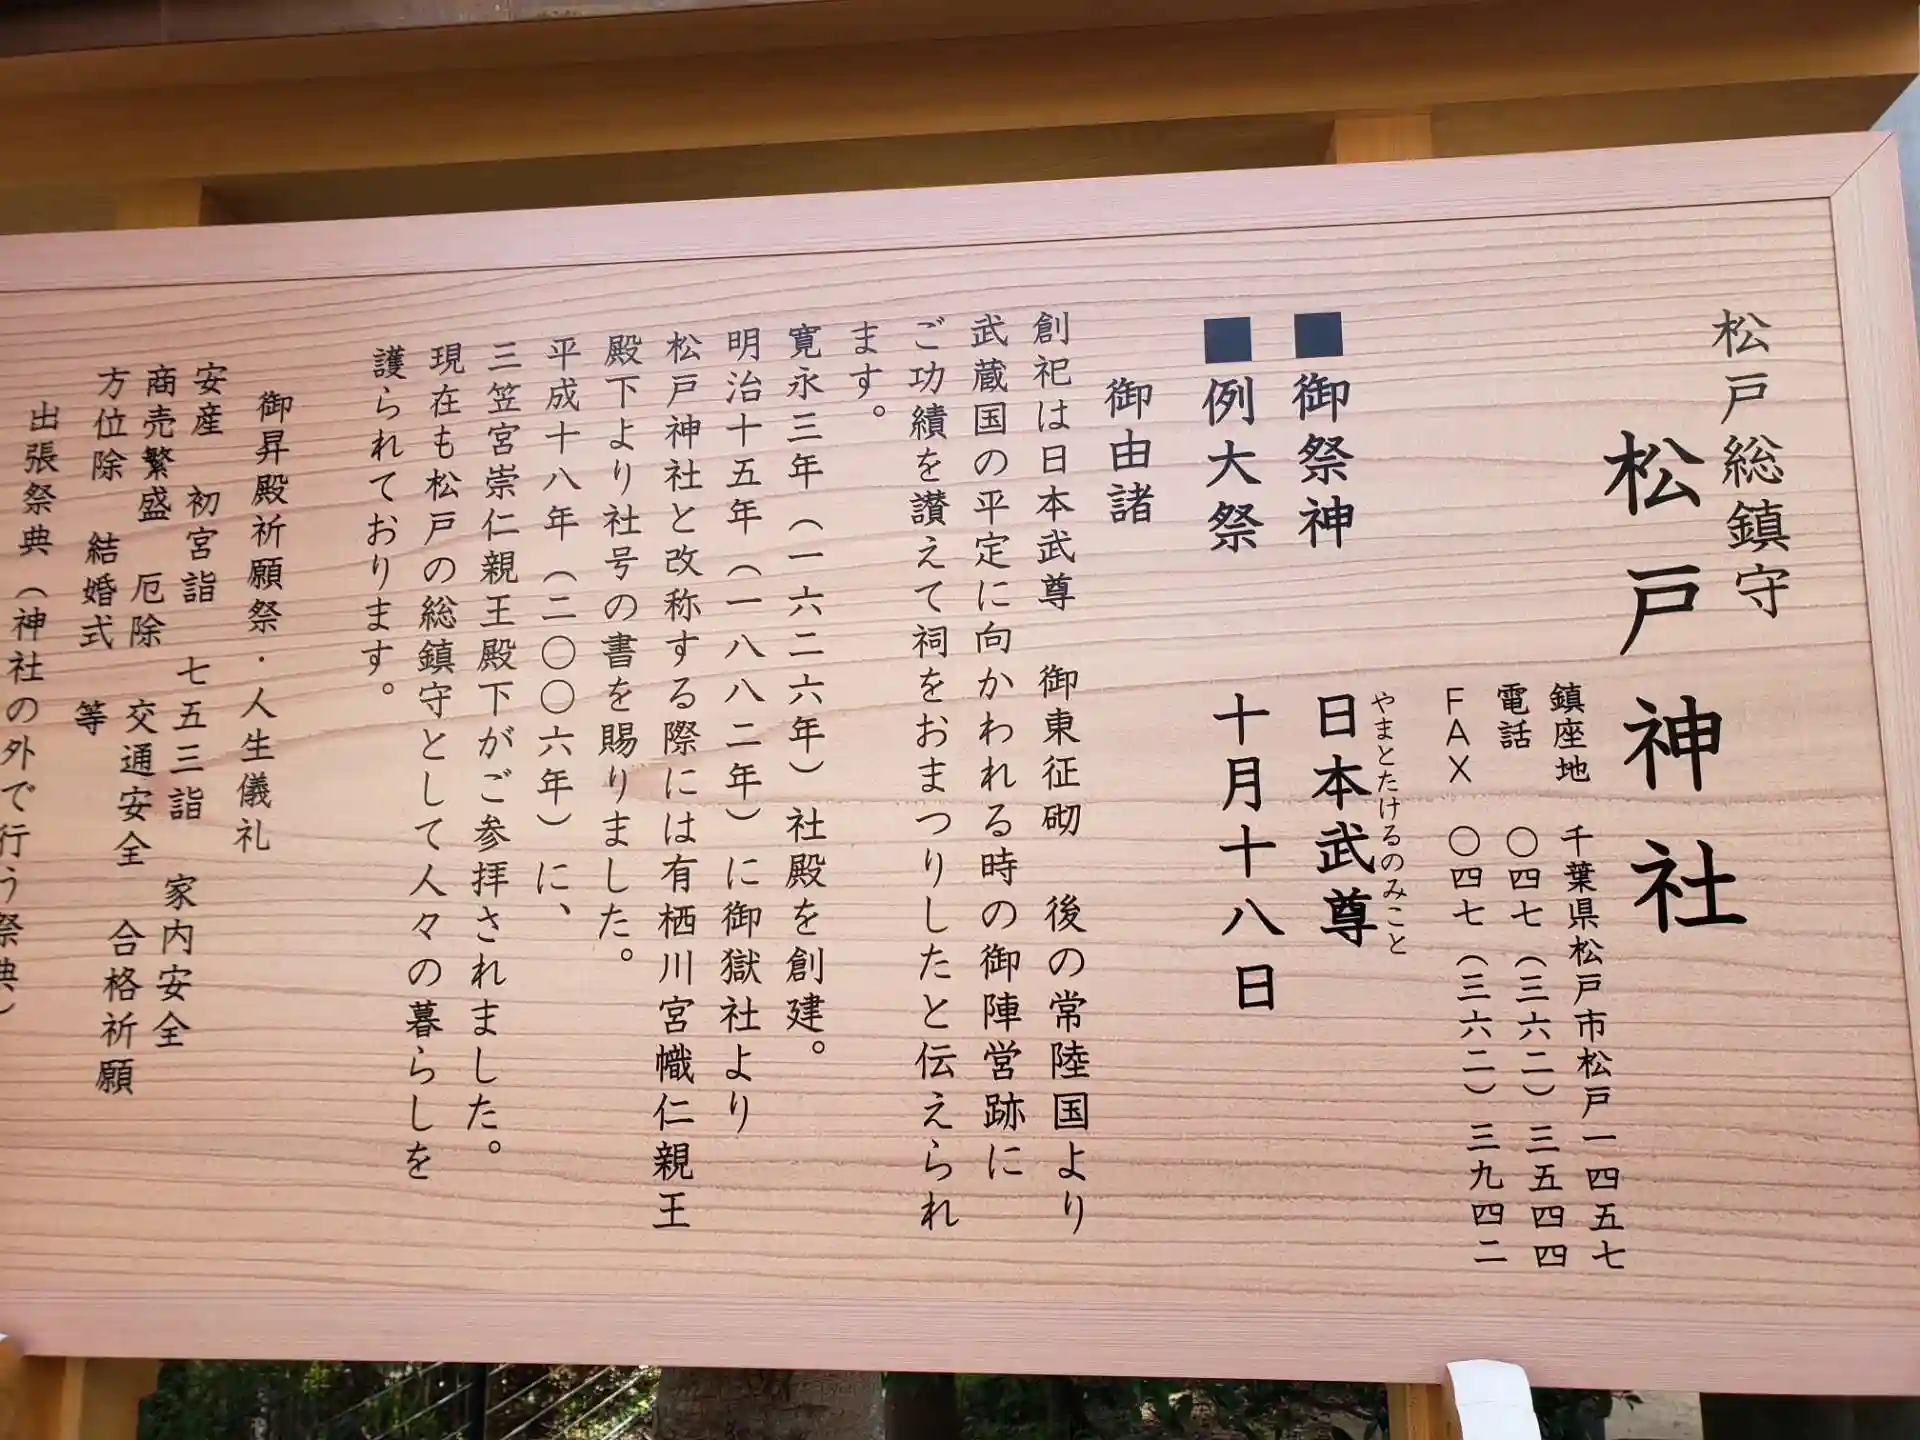 松戸総鎮守
松戸神社
鎮座地 千葉県松戸市松戸一四五七
電話 〇四七(三六二)三五四四
FAX 〇四七(三六二)三九四二
やまとたけるのみこと
■御祭神 日本武尊
■例大祭 十月十八日
御由諸
創祀は日本武尊 御東征砌 後の常陸国より
武蔵国の平定に向かわれる時の御陣営跡に
ご功績を讃えて祠をおまつりしたと伝えられ
ます。
寛永三年(一六二六年)社殿を創建。
明治十五年(一八八二年)に御獄社より
松戸神社と改称する際には有栖川宮幟仁親王
殿下より社号の書を賜りました。
平成十八年(二〇〇六年)に、
三笠宮崇仁親王殿下がご参拝されました。
現在も松戸の総鎮守として人々の暮らしを
護られております。
御昇殿祈願祭・人生儀礼
安産 初宮詣 七五三詣 家内安全
商売繁盛 厄除 交通安全 合格祈願
方位除 結婚式 等
出張祭典(神社の外で行う祭典)